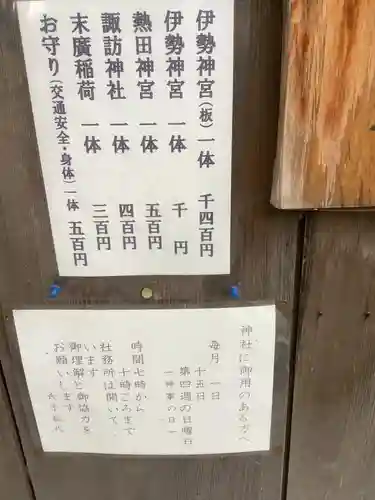 伊勢神宮(板)一体 千四百円
伊勢神宮 一体 千円
熱田神宮 一体 五百円
諏訪神社 一体 四百円
末廣稲荷 一体 三百円
お守り(交通安全・身体)一体 五百円
神社に御用のある方へ
毎月 一日
十五日
第四週の日曜日
時間七時から
十時ごろまで
社務所は開いて
います
御理解と御協力を
お願いします